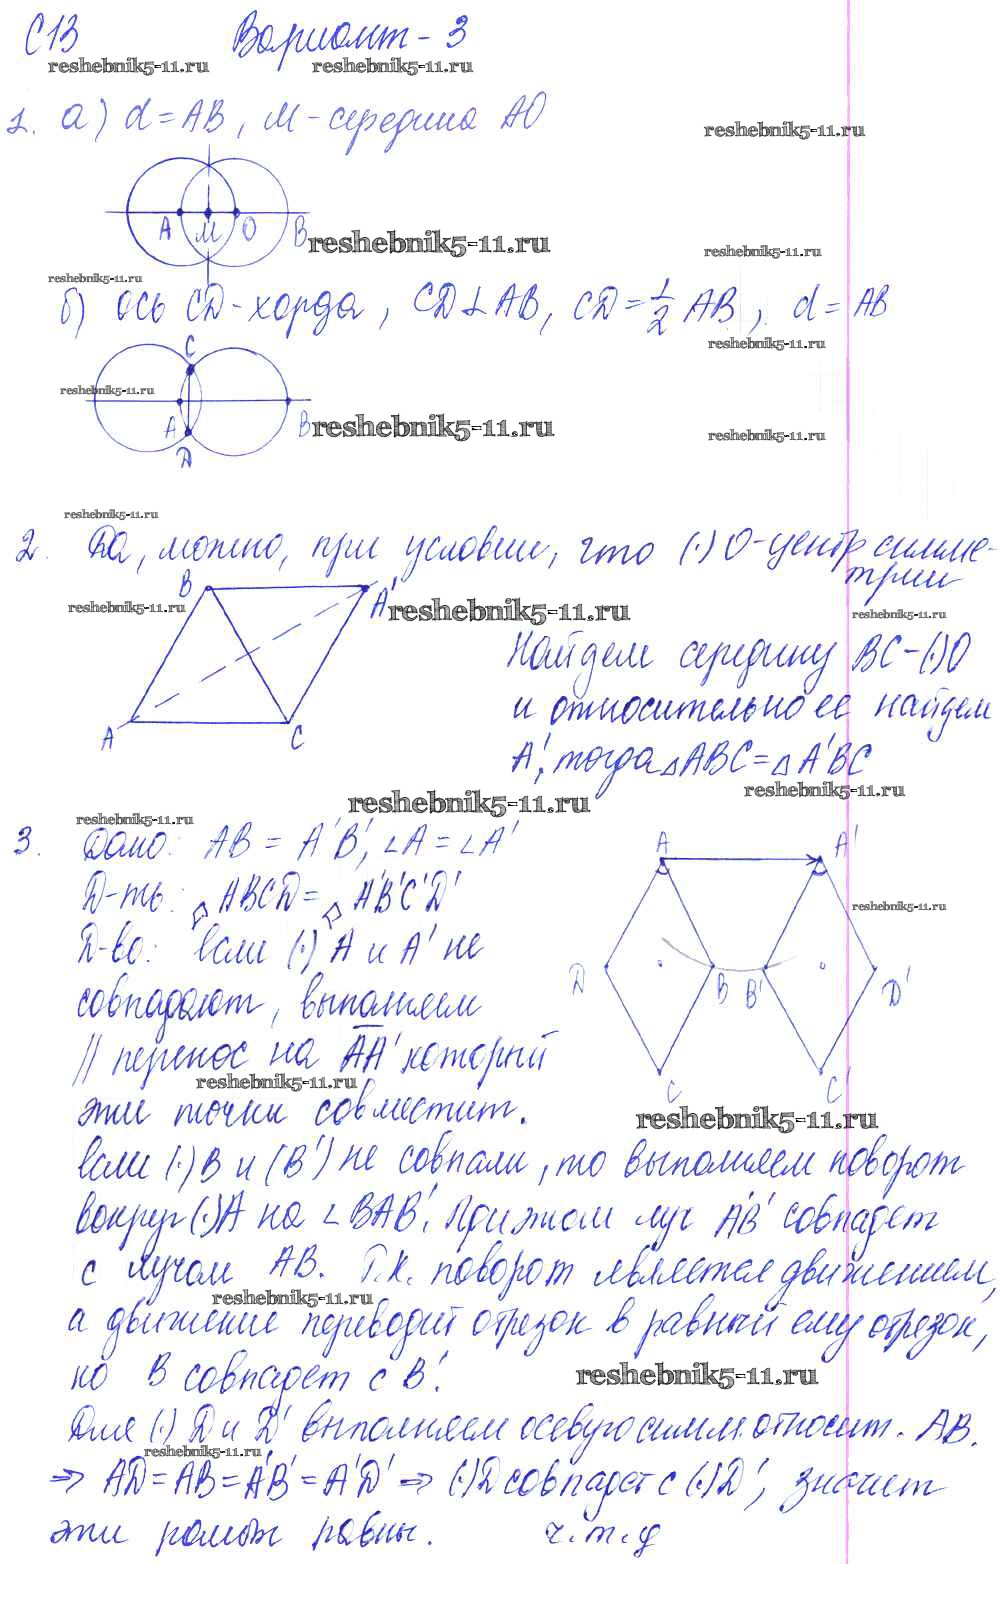 С13 Вариант - 3
reshebnik5-11.ru reshebnik5-11.ru
1. а) d = AB, M - середина AO
reshebnik5-11.ru
A M O B
reshebnik5-11.ru
reshebnik5-11.ru
reshebnik5-11.ru
б) ось CD - хорда, CD ⊥ AB, CD = 1/2 AB, d = AB
reshebnik5-11.ru
C
reshebnik5-11.ru
A B
reshebnik5-11.ru
reshebnik5-11.ru
D
reshebnik5-11.ru
2. Да, можно, при условии, что (·) O - центр симме-
трии
B A'
reshebnik5-11.ru reshebnik5-11.ru reshebnik5-11.ru
Найдем середину BC - (·) O
и относительно ее найдем
A C
A', тогда △ABC = △A'BC
reshebnik5-11.ru
reshebnik5-11.ru
reshebnik5-11.ru
3. Дано: AB = A'B', ∠A = ∠A'
A A'
Д-ть: ▱ABCD = ▱A'B'C'D'
reshebnik5-11.ru
Д-во: если (·) A и A' не
D B B' D'
совпадают, выполняем
// перенос на AA' который
reshebnik5-11.ru
C C'
эти точки совместит.
reshebnik5-11.ru
Если (·) B и (B') не совпали, то выполняем поворот
вокруг (·) A на ∠BAB'. При этом луч A'B' совпадет
с лучом AB. Т.к. поворот является движением,
reshebnik5-11.ru
а движение переводит отрезок в равный ему отрезок,
но B совпадет с B'.
reshebnik5-11.ru
Для (·) D и D' выполняем осевую симм. относит. AB.
reshebnik5-11.ru
⇒ AD = AB = A'B' = A'D' ⇒ (·) D совпадет с (·) D', значит
эти ромбы равны. ч.т.д